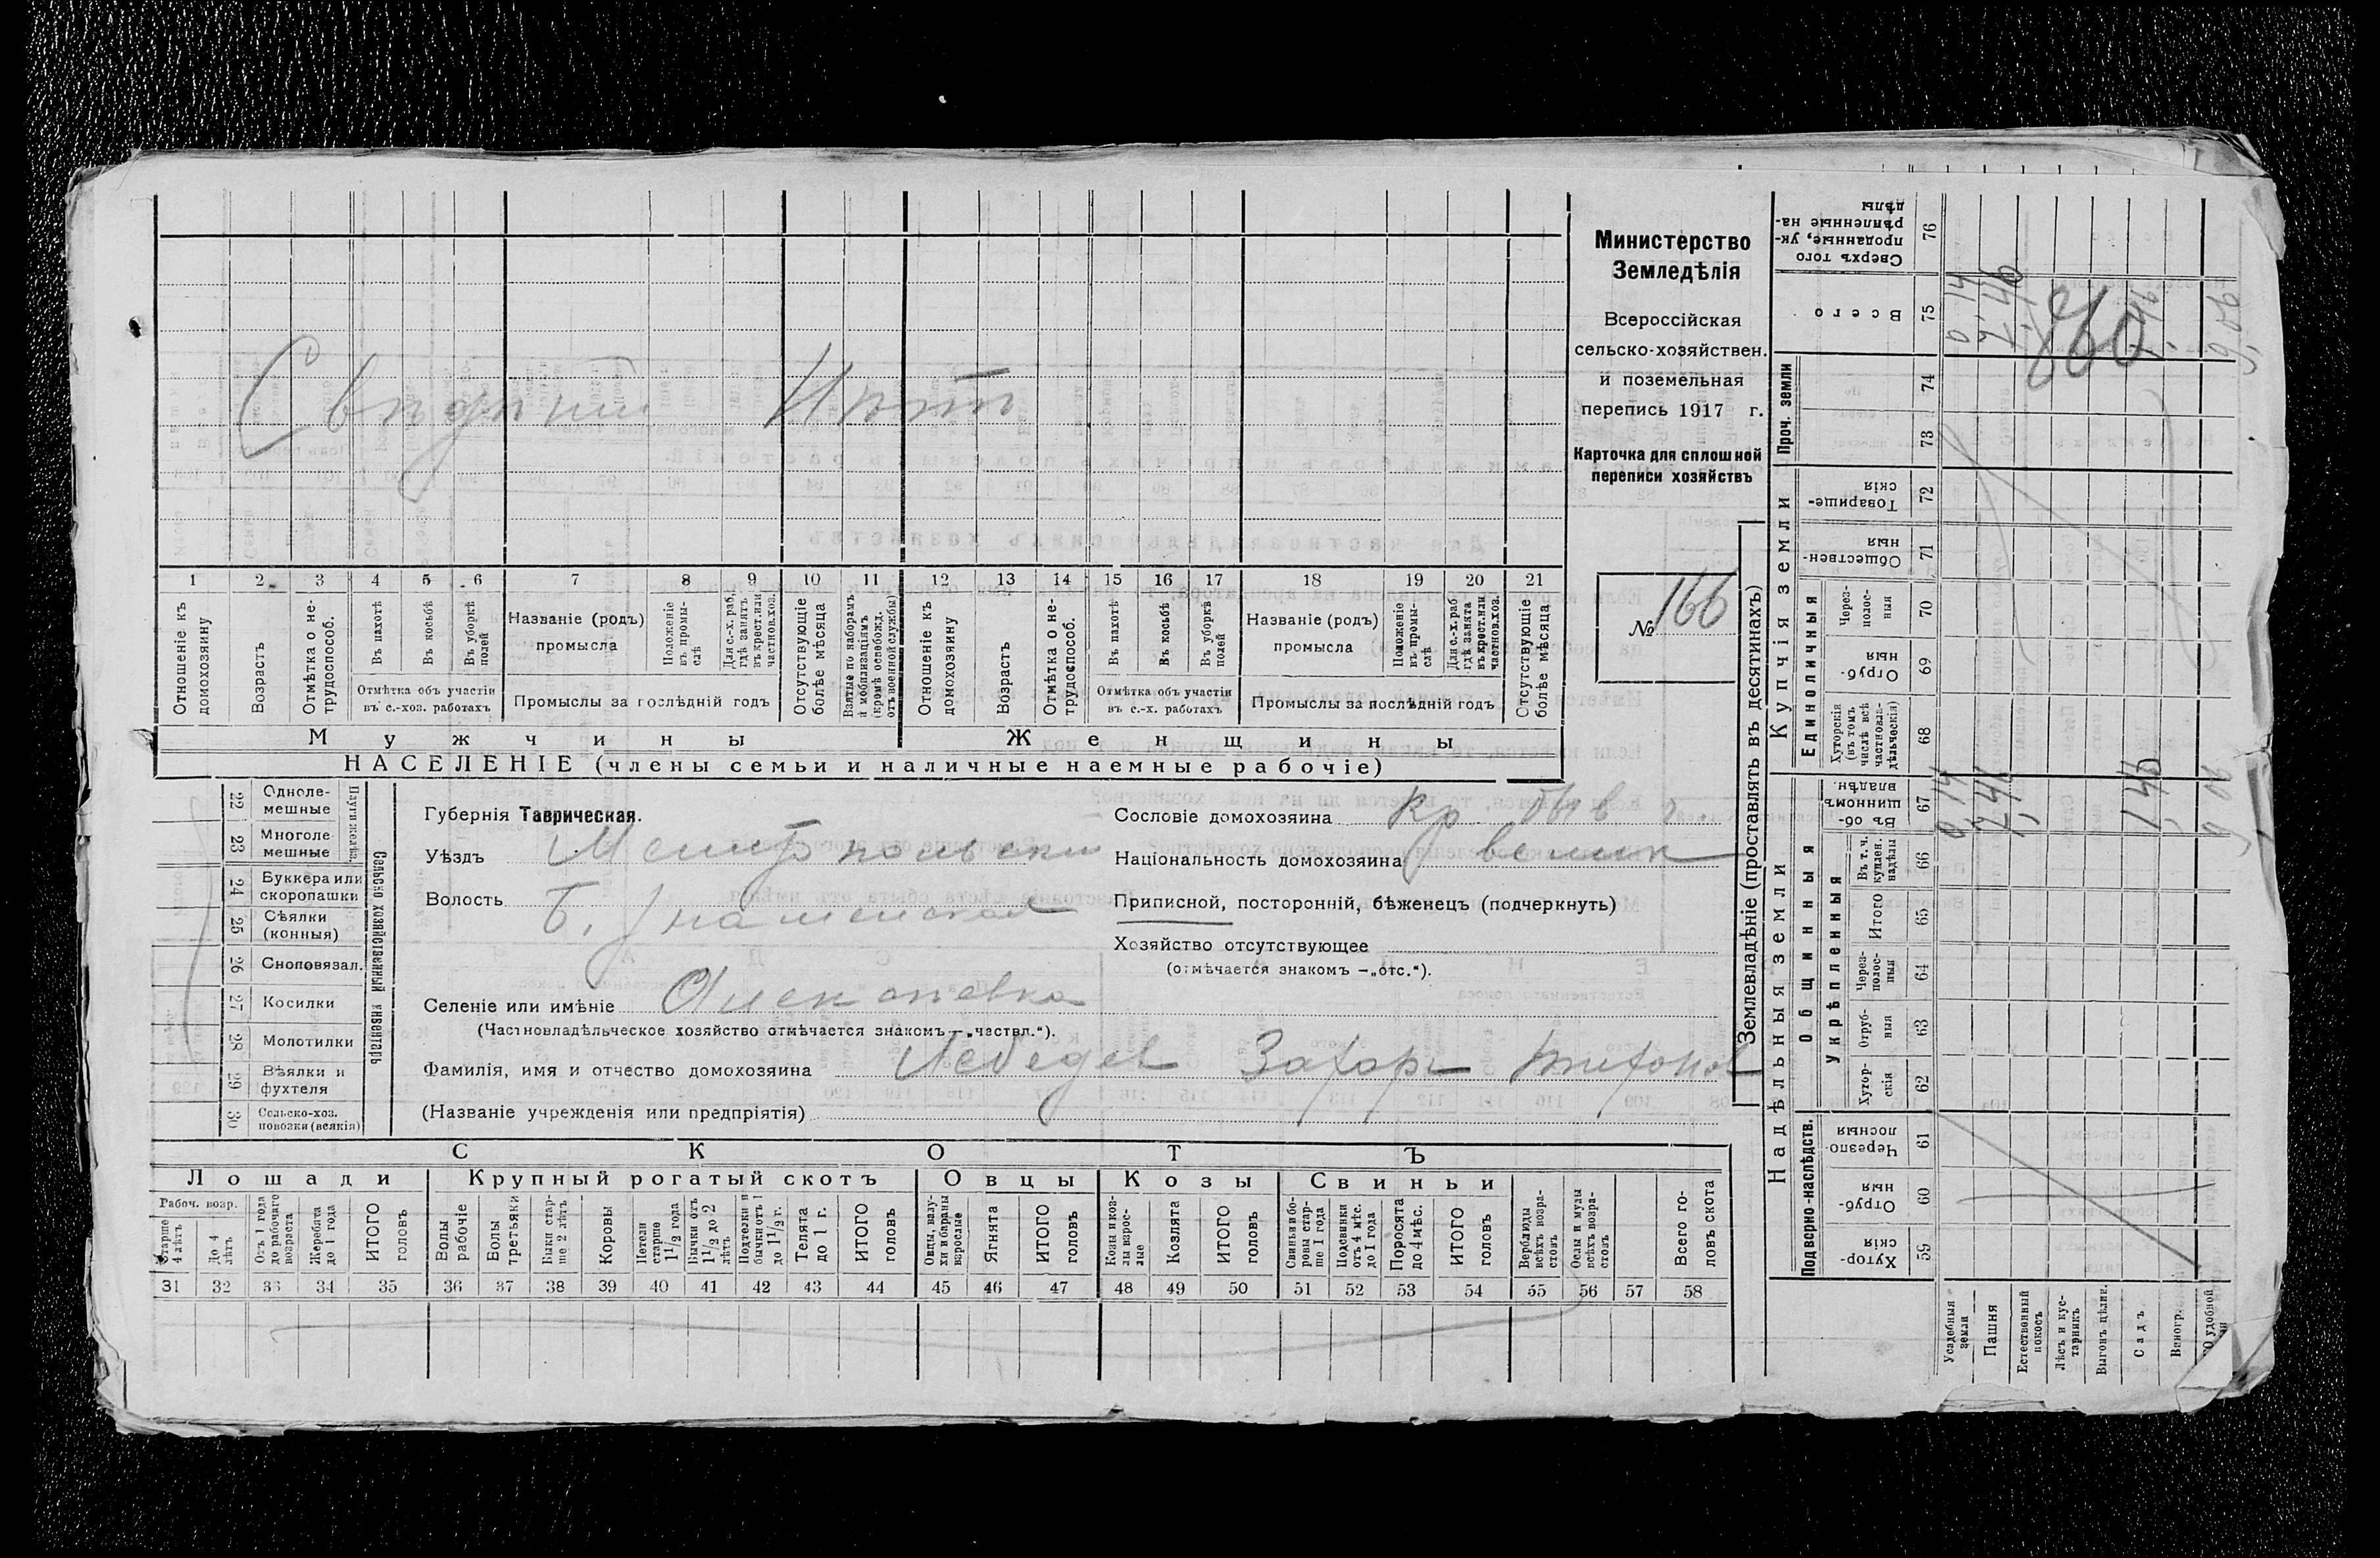 Министерство
Земледѣлія
Всероссійская
сельско-хозяйствен.
и поземельная
перепись 1917 г.
Карточка для сплошной
переписи хозяйствъ
№ 166
1 2 3 4 5 6 7 8 9 10 11 12 13 14 15 16 17 18 19 20 21
Отношеніе къ домохозяину
Возрастъ
Отмѣтка о не-трудоспособ.
Въ пахотѣ
Въ косьбѣ
Въ уборкѣ полей
Отмѣтка объ участіи
въ с.-хоз. работахъ
Названіе (родъ)
промысла
Положеніе въ промы-слѣ
Для с.-х. раб., гдѣ занятъ въ крест. или частнов. хоз.
Промыслы за послѣдній годъ
Отсутствующіе болѣе мѣсяца
Взятые по наборамъ и мобилизаціямъ (кромѣ освобожд. отъ военной службы)
Отношеніе къ домохозяину
Возрастъ
Отмѣтка о не-трудоспособ.
Въ пахотѣ
Въ косьбѣ
Въ уборкѣ полей
Отмѣтка объ участіи
въ с.-х. работахъ
Названіе (родъ)
промысла
Положеніе въ промы-слѣ
Для с.-х. раб. гдѣ занята въ крест. или частнов. хоз.
Промыслы за послѣдній годъ
Отсутствующіе болѣе мѣсяца
Мужчины Женщины
НАСЕЛЕНІЕ (члены семьи и наличные наемные рабочіе)
Сельско хозяйственный инвентарь
22 Однолемешные
23 Многолемешные
24 Буккера или скоропашки
25 Сѣялки (конныя)
26 Сноповязал.
27 Косилки
28 Молотилки
29 Вѣялки и фухтеля
30 Сельско-хоз. повозки (всякія)
Губернія Таврическая.
Уѣздъ
Волость Б. Знаменская
Селеніе или имѣніе
(Частновладѣльческое хозяйство отмѣчается знакомъ — „частвл.“).
Фамилія, имя и отчество домохозяина Лебедев Захаръ Тихонов
(Названіе учрежденія или предпріятія)
Сословіе домохозяина кр.
Національность домохозяина велик
Приписной, посторонній, бѣженецъ (подчеркнуть)
Хозяйство отсутствующее
(отмѣчается знакомъ — „отс.“).
СКОТЪ
Лошади Крупный рогатый скотъ Овцы Козы Свиньи
Рабоч. возр.
Старше 4 лѣтъ
До 4 лѣтъ
Отъ 1 года до рабочаго возраста
Жеребята до 1 года
ИТОГО головъ
Волы рабочіе
Волы третьяки
Быки старше 2 лѣтъ
Коровы
Нетели старше 1½ года
Бычки отъ 1½ до 2 лѣтъ
Подтелки и бычки отъ 1 до 1½ г.
Телята до 1 г.
ИТОГО головъ
Овцы, валухи и бараны взрослые
Ягнята
ИТОГО головъ
Козы и козлы взрослые
Козлята
ИТОГО головъ
Свиньи и боровы старше 1 года
Подсвинки отъ 4 мѣс. до 1 года
Поросята до 4 мѣс.
ИТОГО головъ
Верблюды всѣхъ возрастовъ
Ослы и мулы всѣхъ возрастовъ
Всего головъ скота
31 32 33 34 35 36 37 38 39 40 41 42 43 44 45 46 47 48 49 50 51 52 53 54 55 56 57 58
Землевладѣніе (проставлять въ десятинахъ)
Надѣльныя земли
Купчія земли
Проч. земли
Подворно-наслѣдств.
Общинныя
Укрѣпленныя
Единоличныя
59 Хутор-скія
60 Отруб-ныя
61 Черезпо-лосныя
62 Хутор-скія
63 Отруб-ныя
64 Через-полос-ныя
65 Итого
66 Въ т. ч. куплен. надѣлы
67 Въ об-щинномъ владѣн.
68 Хуторскія (въ томъ числѣ всѣ частновла-дѣльческія)
69 Отруб-ныя
70 Через-полос-ныя
71 Обществен-ныя
72 Товарище-скія
73
74
75 Всего
76 Сверхъ того проданные, ук-рѣпленные на-дѣлы
Усадебныя земли
Пашня
Естественный покосъ
Лѣсъ и кус-тарникъ
Выгонъ цѣлин.
Садъ
Виногр.